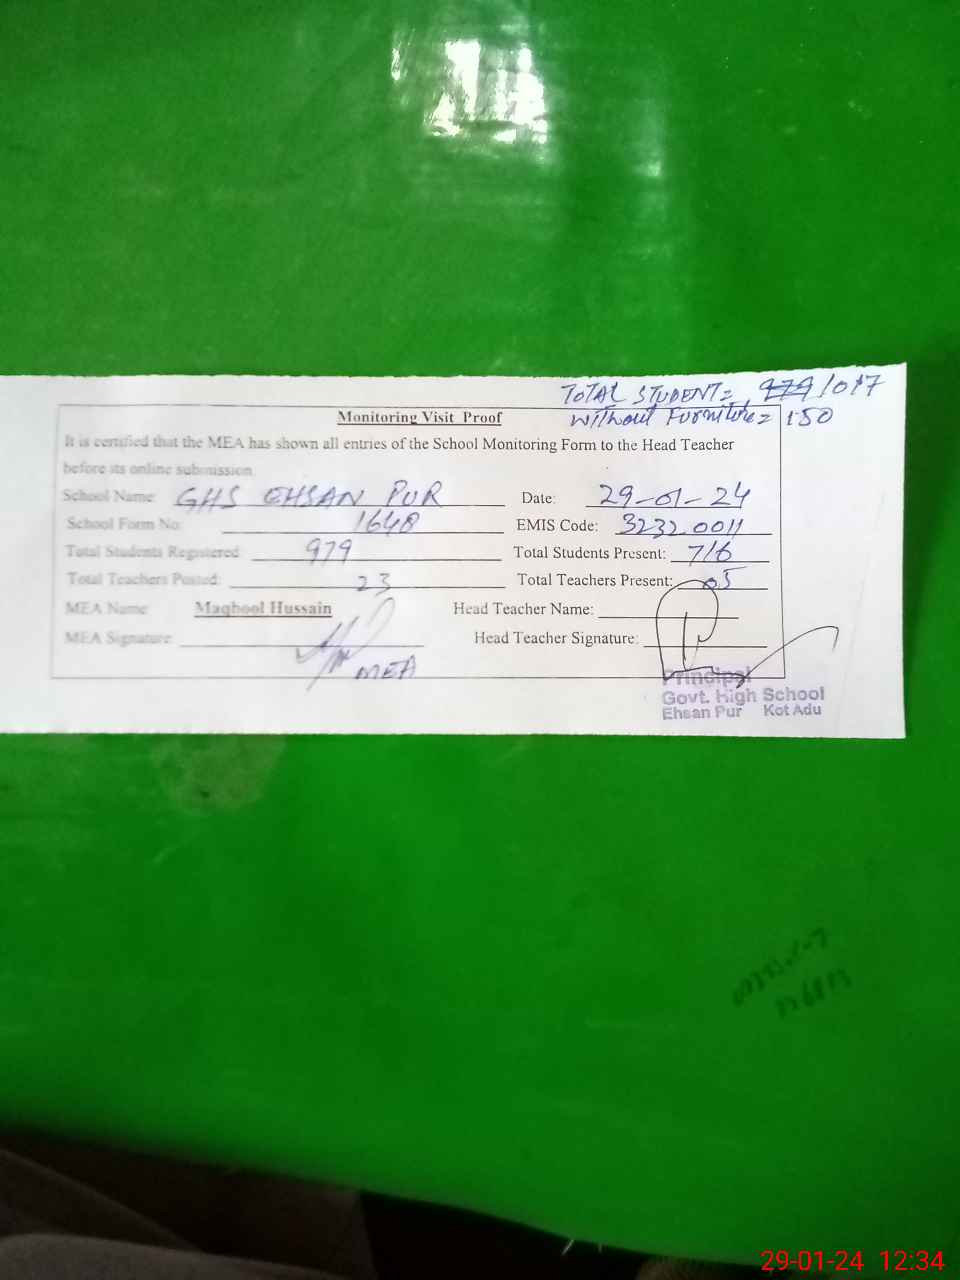 TOTAL STUDENT= 979 1017
without Furniture= 150
Monitoring Visit Proof
It is certified that the MEA has shown all entries of the School Monitoring Form to the Head Teacher
before its online submission
School Name: GHS EHSAN PUR Date: 29-01-24
School Form No: 1648 EMIS Code: 32320011
Total Students Registered: 979 Total Students Present: 716
Total Teachers Posted: 23 Total Teachers Present: 05
MEA Name: Maqbool Hussain Head Teacher Name:
MEA Signature: Head Teacher Signature:
MEA
Principal
Govt. High School
Ehsan Pur Kot Adu
29-01-24 12:34